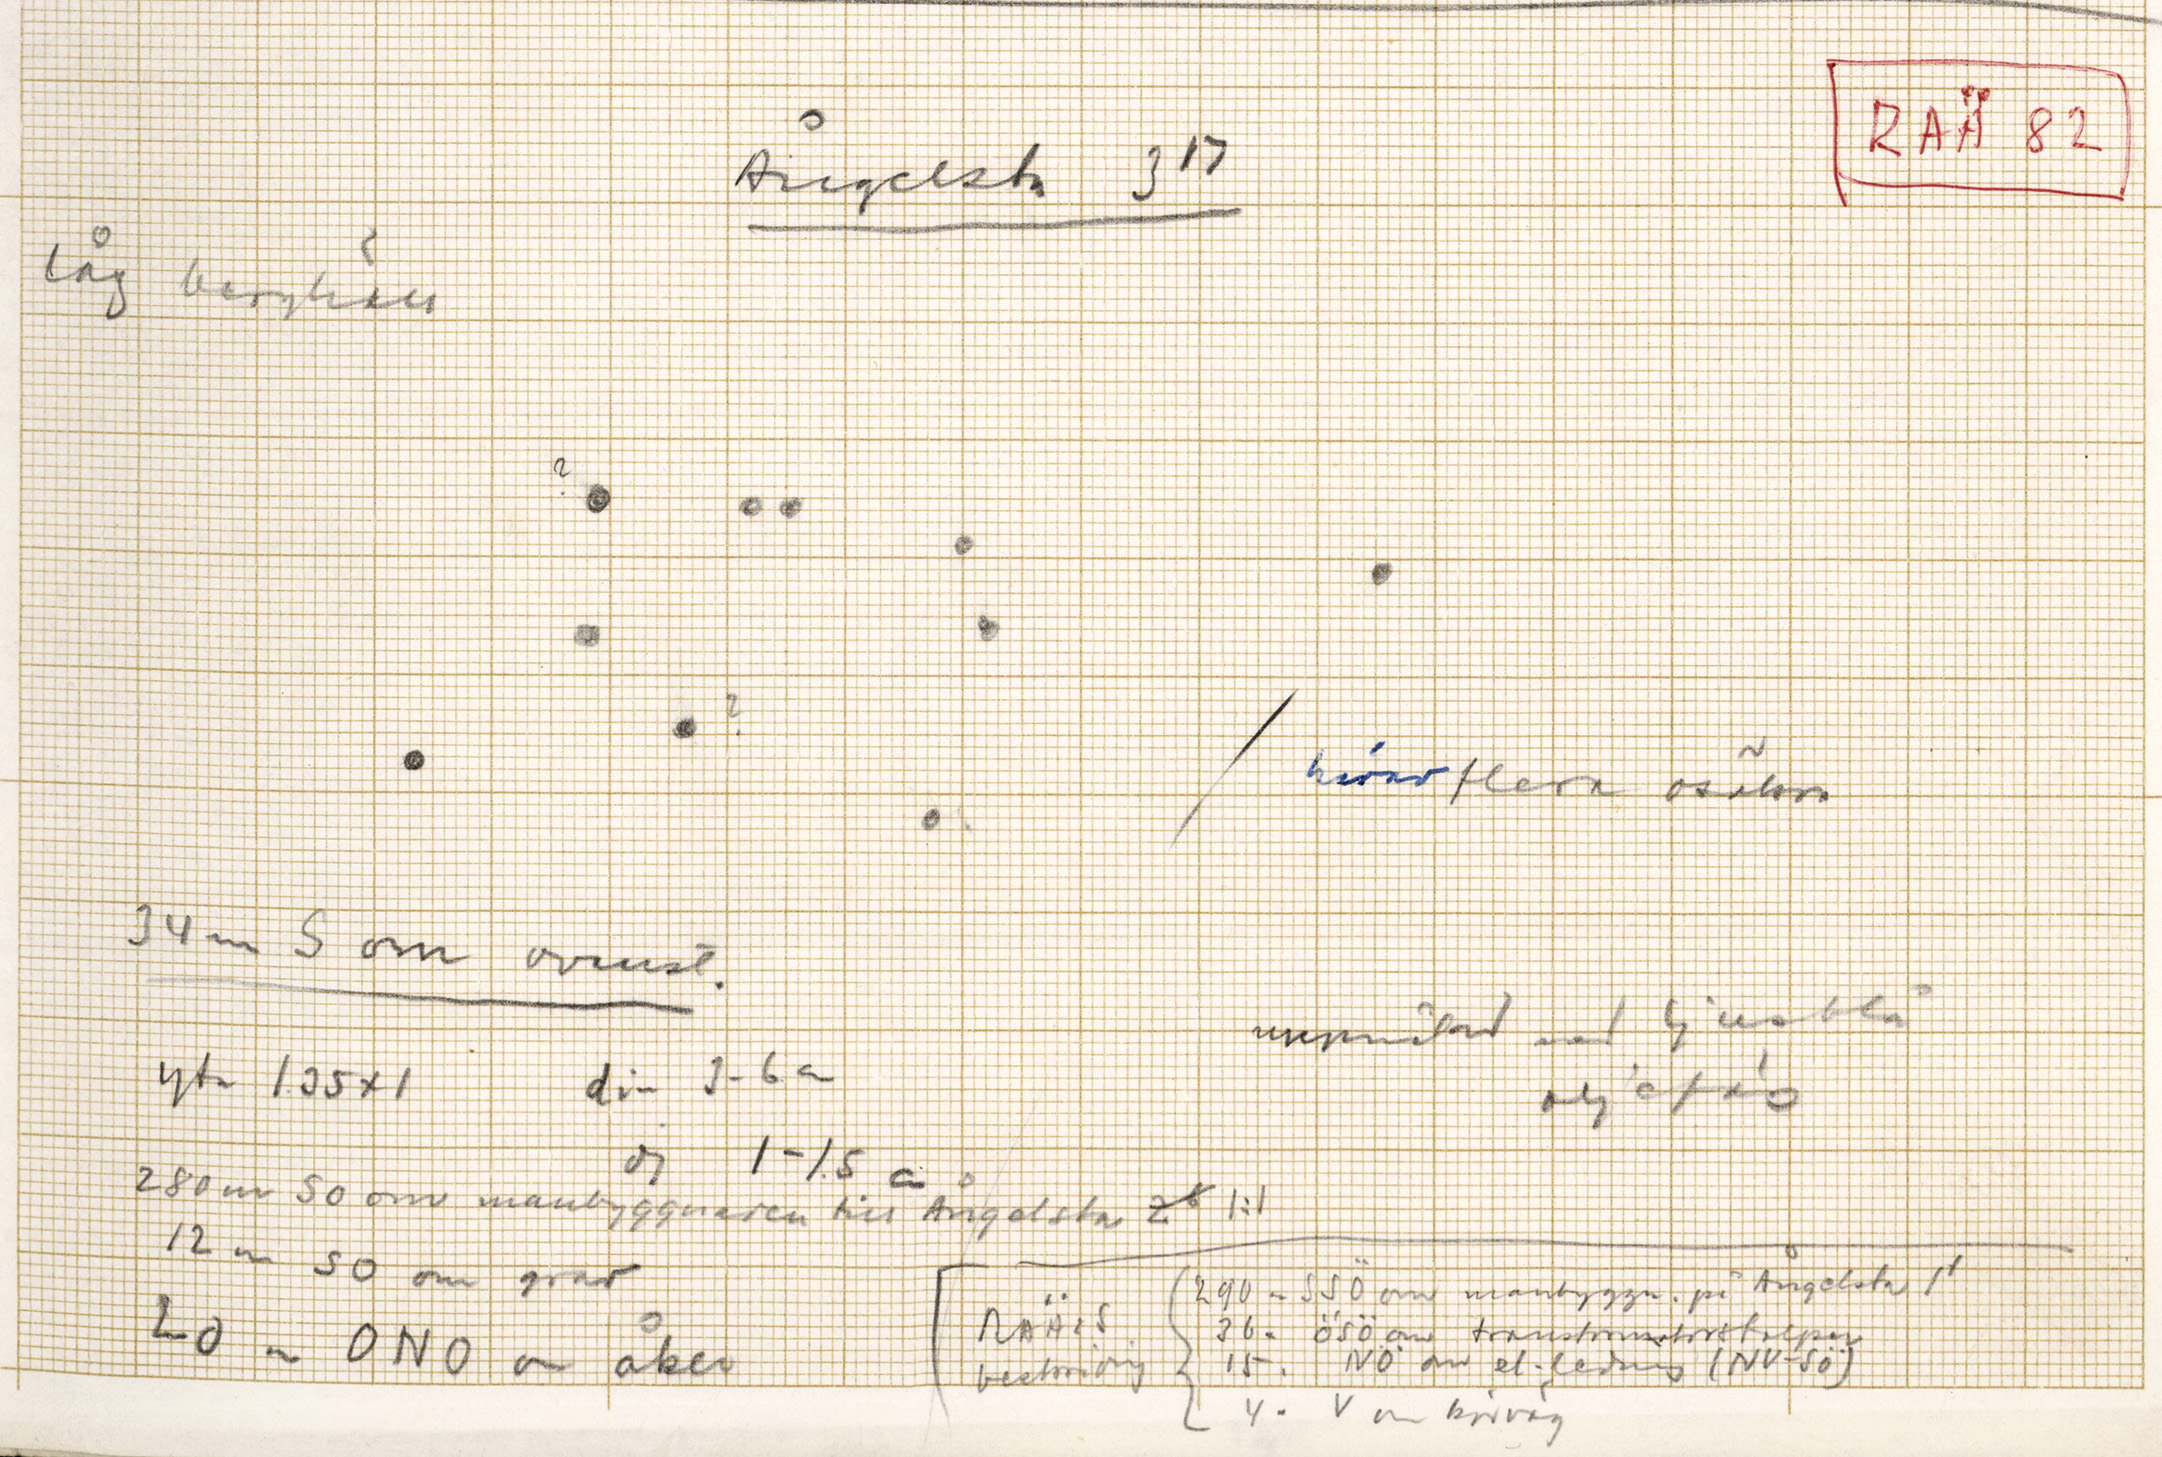 RAÄ 82
Ångelsta 3¹⁷
låg berghäll
?
?
härav flera osäkra
34 m S om ovanst.
yta 1.35x1 dia 3-6 cm
dj 1-1.5 cm
uppmålad med ljusblå
oljefärg
280 m SO om manbyggnaden till Ångelsta 1:1
12 m SO om grav
20 m ONO om åker
RAÄ:s
beskrivning
290 m SSÖ om manbyggn. på Ångelsta 1¹
36 - ÖSÖ om transformatorstolpen
15 - NÖ om el-ledning (NV-SÖ)
4 - V om körväg